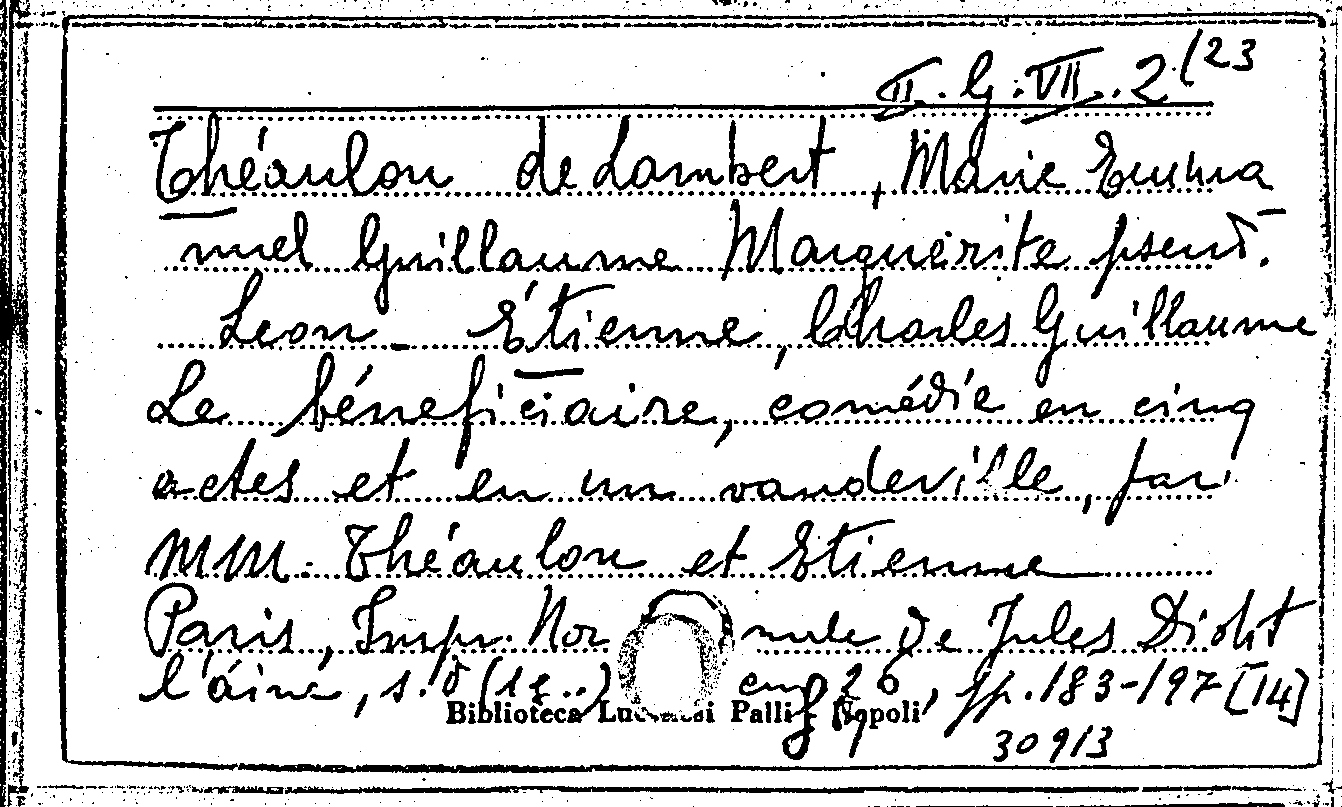 II. G. VII. 2/23
Théaulon de Lambert, Marie Emma
nuel Guillaume Marguerite pseud.
Leon - Étienne, Charles Guillaume
Le béneficiaire, comédie en cinq
actes et en un vaudeville, par
MM. Théaulon et Etienne
Paris, Impr. Nor male de Jules Didot
l'áiné, s. d (18..) cm 26, pp. 183-197 [14]
Biblioteca Lucchesi Palli - Napoli
30913